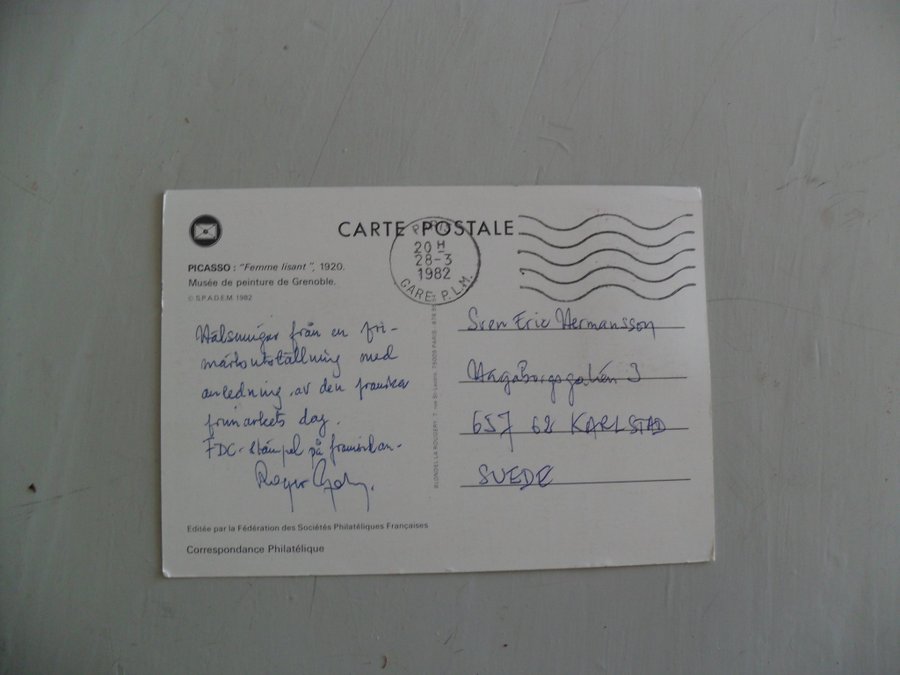 CARTE POSTALE
PARIS
20 H
28-3
1982
GARE P.L.M.
PICASSO : "Femme lisant", 1920.
Musée de peinture de Grenoble.
© S.P.A.D.E.M. 1982
Hälsningar från en fri-
märksutställning med
anledning av den franska
frimärkets dag.
FDC-stämpel på framsidan.
Roger
Sven Eric Hermansson
3
657 62 KARLSTAD
SUEDE
BLONDEL LA ROUGERY, 7, rue St-Lazare, 75009 PARIS
Editée par la Fédération des Sociétés Philatéliques Françaises
Correspondance Philatélique